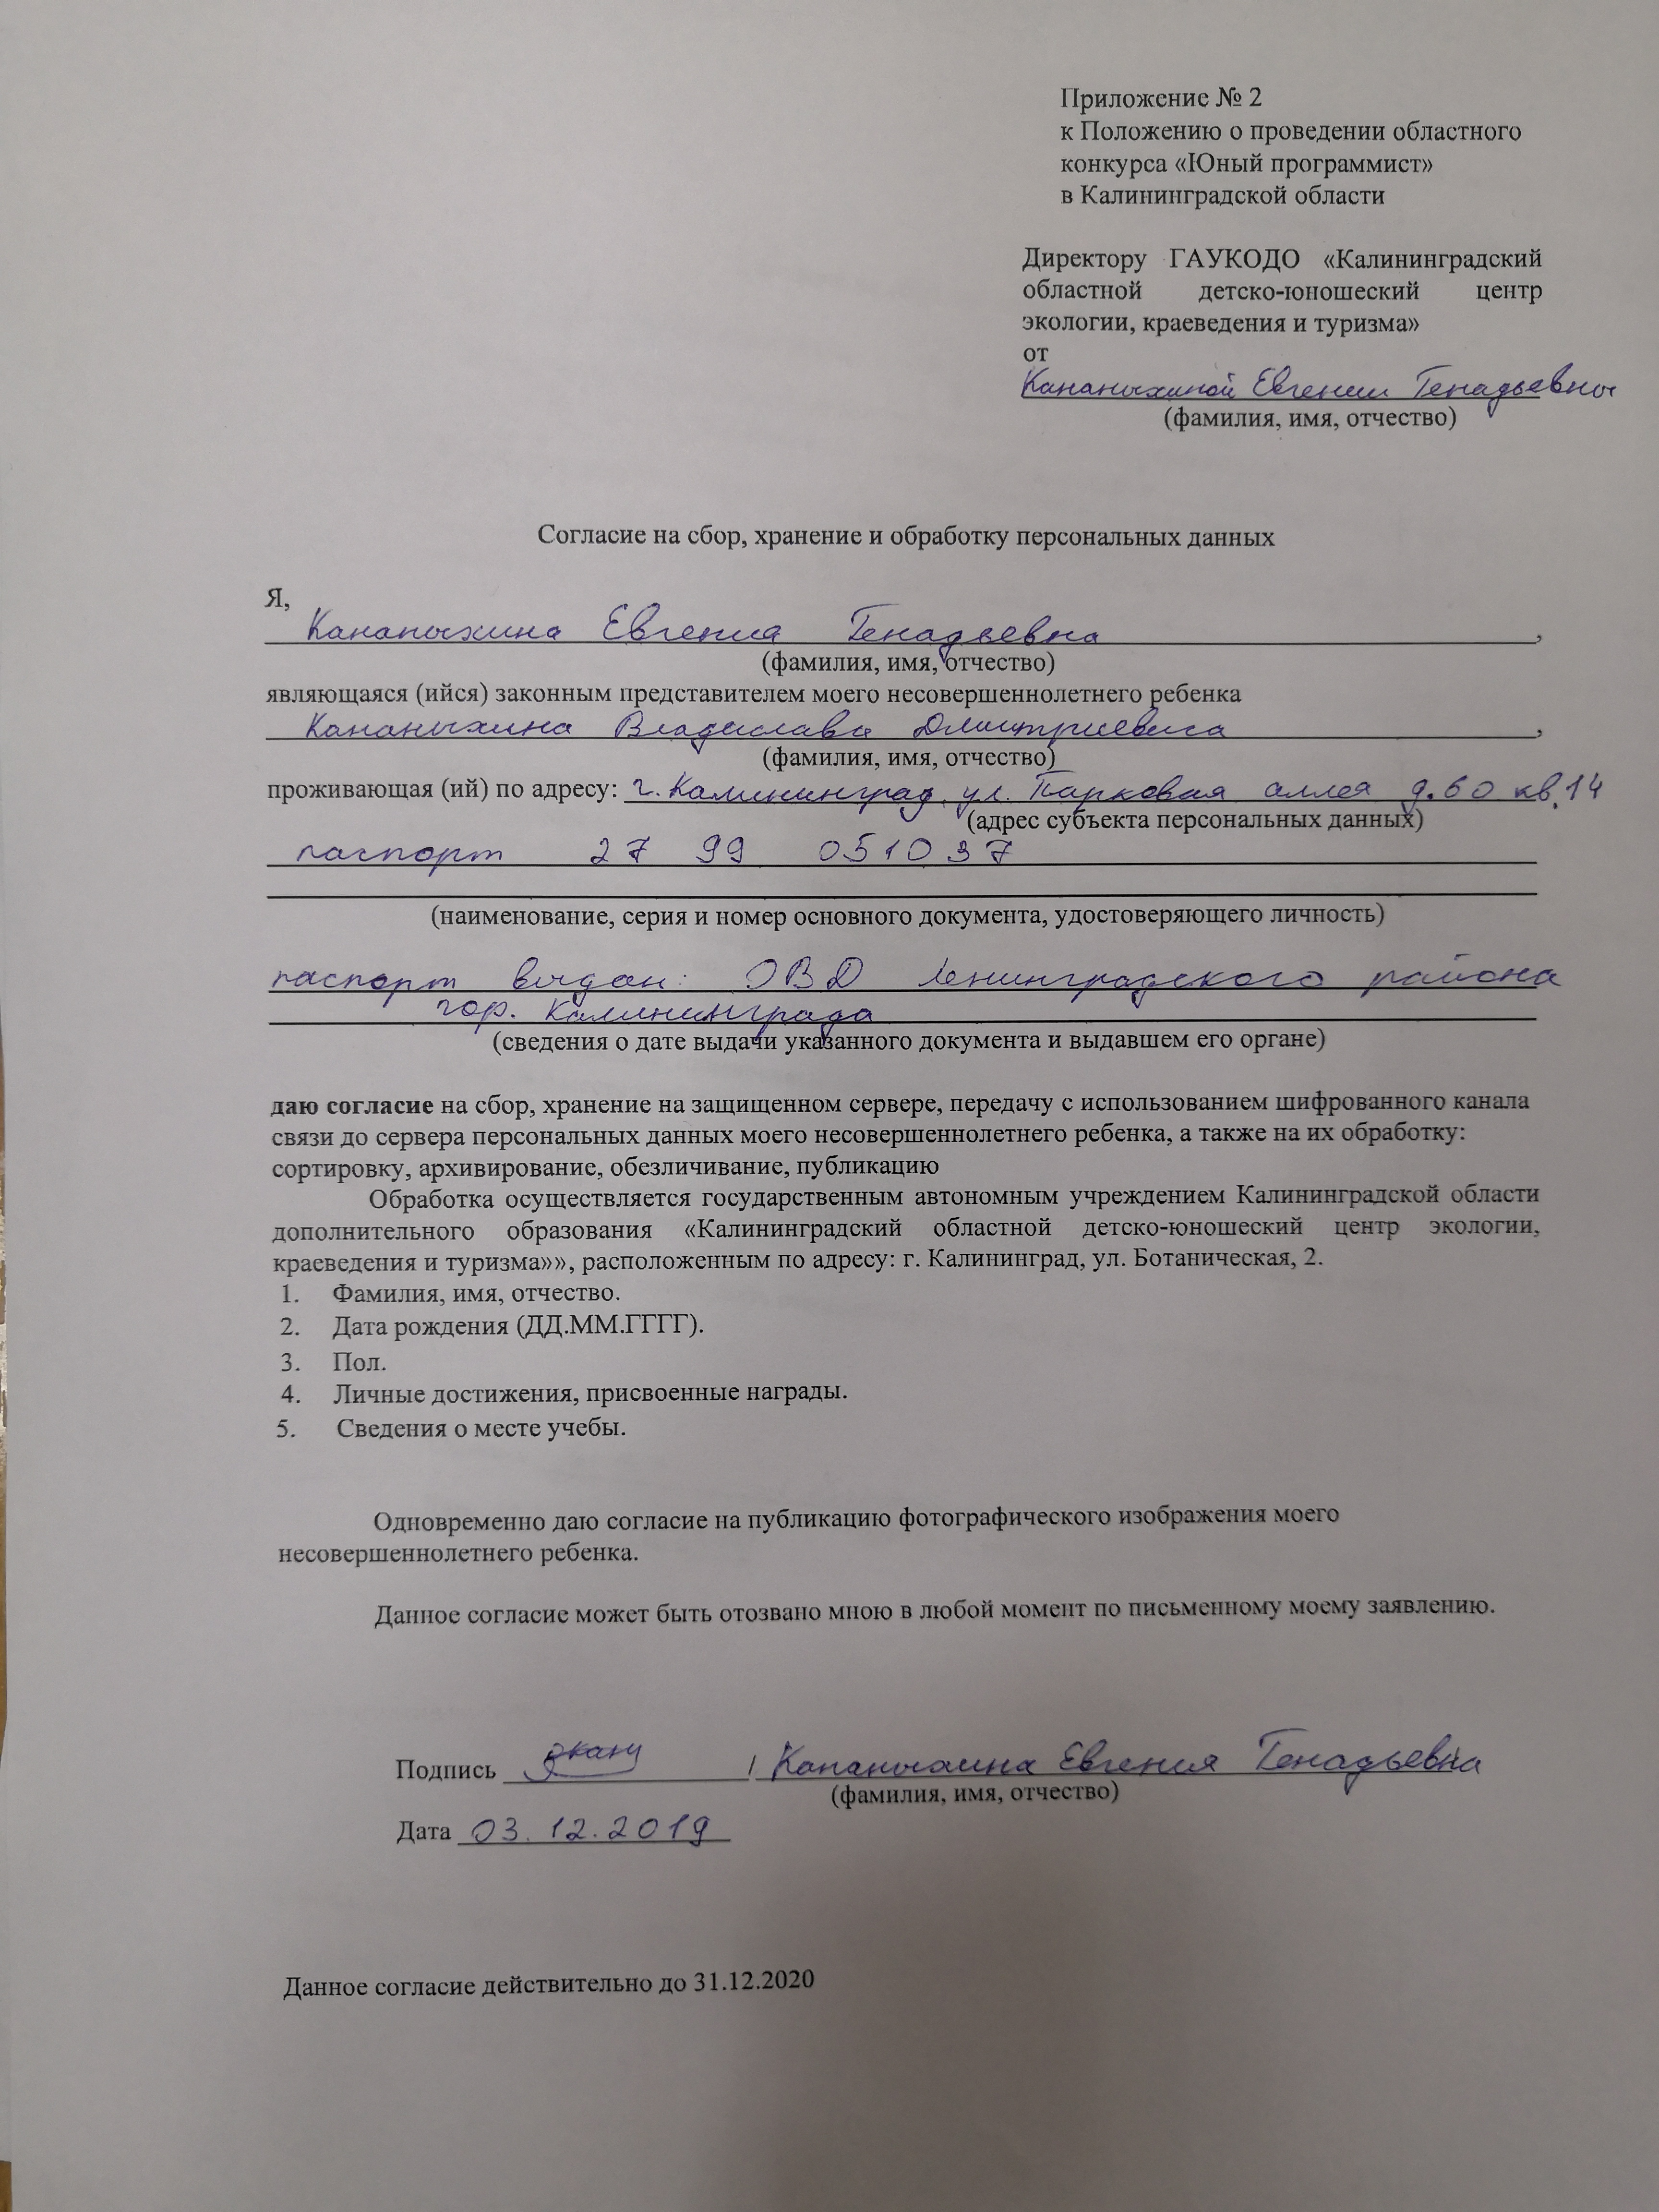 Приложение № 2
к Положению о проведении областного
конкурса «Юный программист»
в Калининградской области
Директору ГАУКОДО «Калининградский
областной детско-юношеский центр
экологии, краеведения и туризма»
от
Кананыхиной Евгении Генадьевны
(фамилия, имя, отчество)
Согласие на сбор, хранение и обработку персональных данных
Я,
Кананыхина Евгения Генадьевна,
(фамилия, имя, отчество)
являющаяся (ийся) законным представителем моего несовершеннолетнего ребенка
Кананыхина Владислава Дмитриевича,
(фамилия, имя, отчество)
проживающая (ий) по адресу: г. Калининград, ул. Парковая аллея д. 60 кв. 14
(адрес субъекта персональных данных)
паспорт 27 99 051037
(наименование, серия и номер основного документа, удостоверяющего личность)
паспорт выдан: ОВД Ленинградского района
гор. Калининграда
(сведения о дате выдачи указанного документа и выдавшем его органе)
даю согласие на сбор, хранение на защищенном сервере, передачу с использованием шифрованного канала
связи до сервера персональных данных моего несовершеннолетнего ребенка, а также на их обработку:
сортировку, архивирование, обезличивание, публикацию
Обработка осуществляется государственным автономным учреждением Калининградской области
дополнительного образования «Калининградский областной детско-юношеский центр экологии,
краеведения и туризма»», расположенным по адресу: г. Калининград, ул. Ботаническая, 2.
1. Фамилия, имя, отчество.
2. Дата рождения (ДД.ММ.ГГГГ).
3. Пол.
4. Личные достижения, присвоенные награды.
5. Сведения о месте учебы.
Одновременно даю согласие на публикацию фотографического изображения моего
несовершеннолетнего ребенка.
Данное согласие может быть отозвано мною в любой момент по письменному моему заявлению.
Подпись / Кананыхина Евгения Генадьевна
(фамилия, имя, отчество)
Дата 03.12.2019
Данное согласие действительно до 31.12.2020